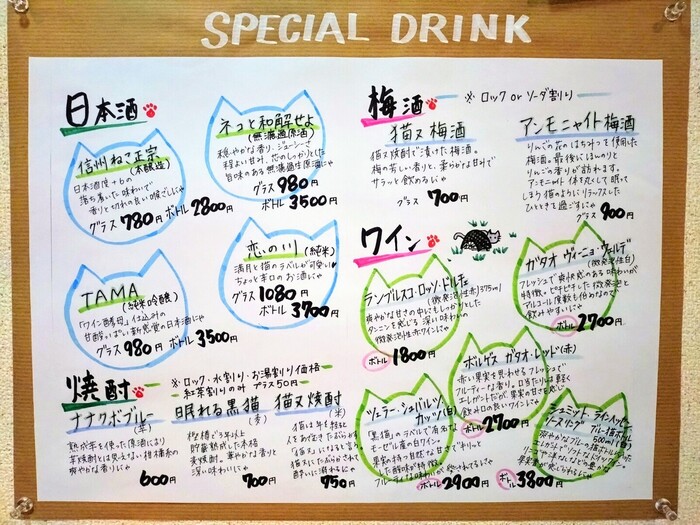 SPECIAL DRINK
日本酒
信州ねこ正宗
(本醸造)
日本酒度+6の
落ち着いた味わいで
香りと切れの良い喉ごしじゃ
グラス 780円 ボトル 2800円
ネコと和解せよ
(無濾過原酒)
穏やかな香り、ジューシーさ
程よい甘み、花のしっかりとした
旨味のある無濾過生原酒じゃ
グラス 980円
ボトル 3500円
TAMA
(純米吟醸)
「ワイン酵母」仕込みの
甘酸っぱい新感覚の日本酒じゃ
グラス 980円 ボトル 3500円
恋の川 (純米)
満月と猫のラベルが可愛い
ちょっと辛口のお酒じゃ
グラス 1080円
ボトル 3700円
焼酎
※ロック・水割り・お湯割り価格
紅茶割りのみ プラス50円
ナナクボブルー
(芋)
熟成芋を使った原酒により
芋焼酎とは思えない柑橘系の
爽やかな香りじゃ
600円
眠れる黒猫
(麦)
樫樽で3年以上
貯蔵熟成した本格
麦焼酎。華やかな香りと
深い味わいじゃ
700円
猫又焼酎
(米)
猫は年を経ると
人をあざむきたぶらかす
「猫又」になると言う
猫又にたぶらかされて
酔いに溺れるにゃ
750円
梅酒
※ロック or ソーダ割り
猫又梅酒
猫又焼酎で漬けた梅酒。
梅の芳しい香りと、柔らかな甘みで
サラッと飲めるにゃ
グラス 700円
アンモニャイト梅酒
りんごの花のはちみつを使用した
梅酒。最後にほんのりと
りんごの香りが訪れます。
アンモニャイト体を丸くして眠って
しまう猫のようにリラックスした
ひとときを過ごすにゃ
グラス 900円
ワイン
ランブルスコ・ロッソ・ドルチェ
(微発泡性赤) 375ml
爽やかな甘さの中にもしっかりした
タンニンを感じる深い味わいの
微発泡性赤ワインじゃ
ボトル 1800円
ガタオ ヴィーニョ・ヴェルデ
(微発泡性白)
フレッシュで爽快感のある味わいが
特徴。ピチピチした微発泡と
アルコール度数も低めなので
飲みやすいにゃ
ボトル 2700円
ボルゲス ガタオ・レッド(赤)
赤い果実を思わせるフレッシュで
フルーティーな香り。口当たりは軽く
エレガントだが、果実の甘さを感じ
飲み口の良いワインじゃ
ボトル 2700円
ツェラー・シュバルツ・
カッツ(白)
「黒猫」のラベルで有名な
モーゼル産の白ワイン。
果実の持つ自然な甘さでキリッと
した酸味が特徴
フルーティな味わいで愛されてるにゃ
ボトル 2900円
シュミット・ライ・カッツェ
リースリング
アルコール猫ボトル
500ml
爽やかなブルーの猫ボトル
ボトル 3800円